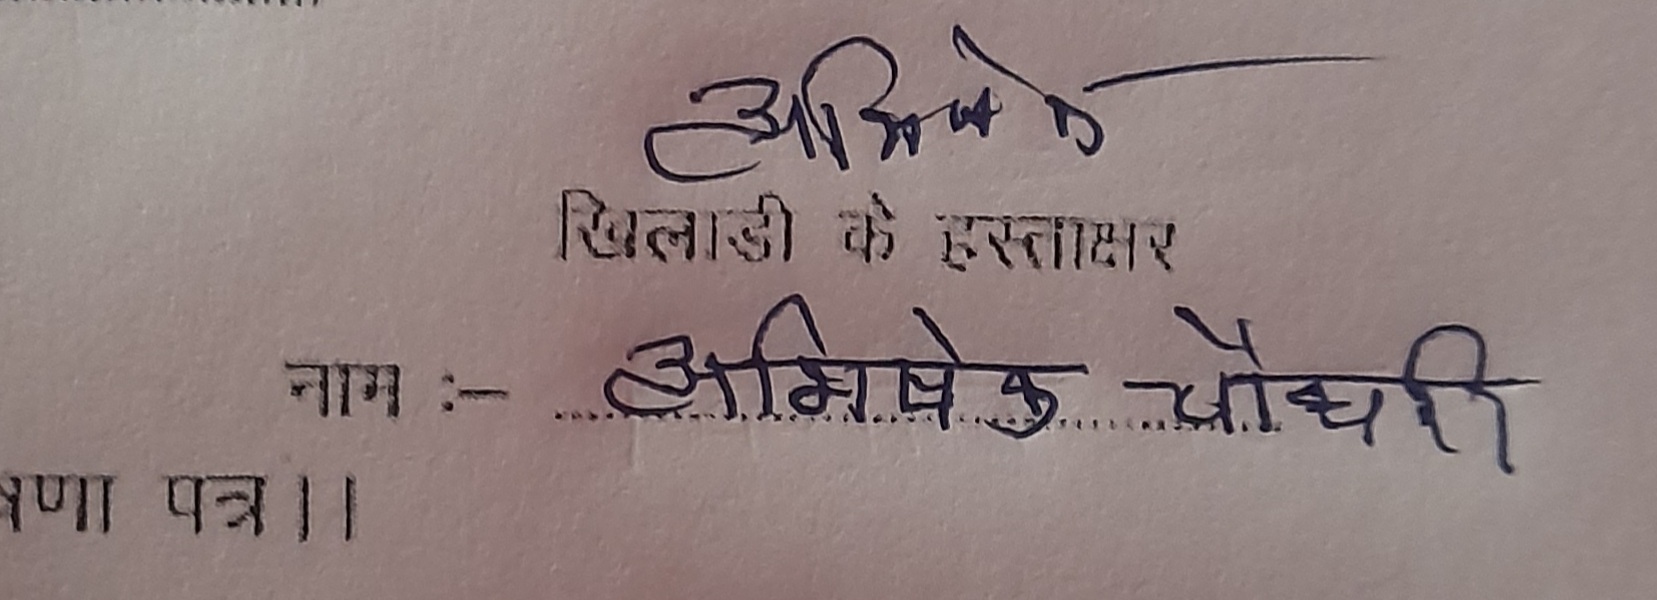 अभिषेक
खिलाडी के हस्ताक्षर
नाम :- अभिषेक चौधरी
षणा पत्र।।